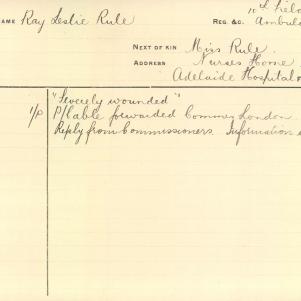 NAME Ray Leslie Rule
REG. &C. 10th Field
Ambula
NEXT OF KIN Miss Rule.
ADDRESS Nurses Home
Adelaide Hospital
"Severely wounded"
1/p P/Cable forwarded Commrs London.
Reply from Commissioners. Information